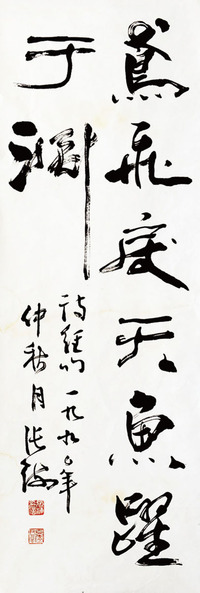 鳶飛戾天魚躍
于淵
詩經句 一九九〇年
仲秋月